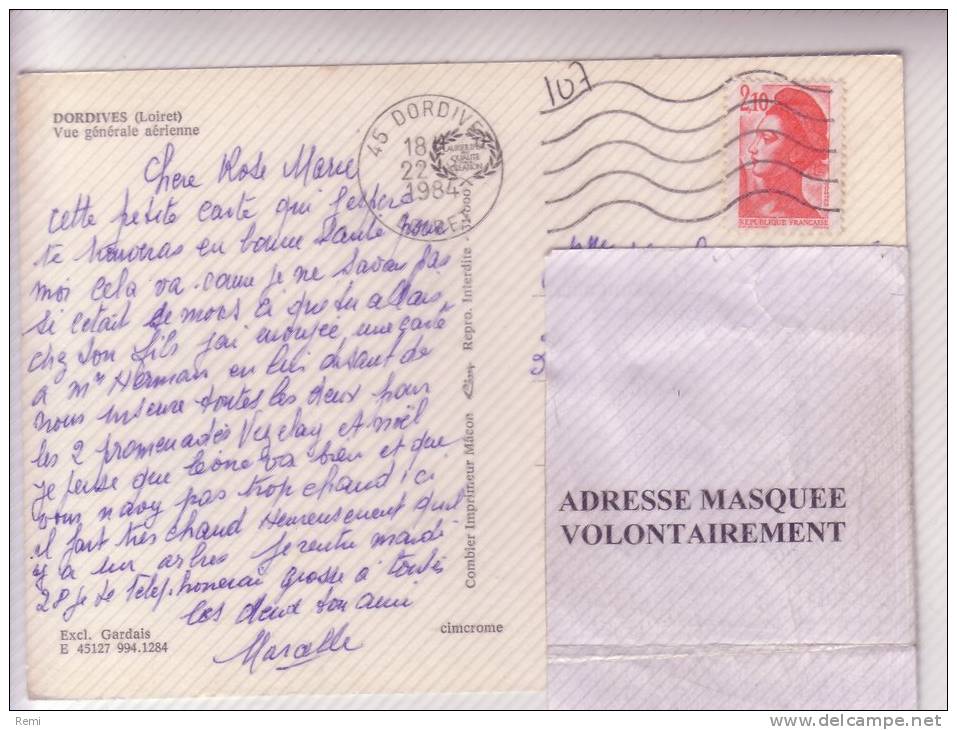 DORDIVES (Loiret)
Vue générale aérienne
107
45 DORDIVES
18 H
22
1984
LOIRET
QUALITE
2,10
REPUBLIQUE FRANÇAISE
Chere Rose Marie
cette petite carte qui j'espère
te trouveras en bonne santé pour
moi cela va. comme je ne savais pas
si cetait ce mois ci que tu allais
chez ton fils j'ai envoyée une carte
a Mr Herman en lui disant de
nous inscrire toutes les deux pour
les 2 promenades Vezelay et Noël
je pense que Léone va bien et que
vous n'avez pas trop chaud ici
il fait très chaud Heureusement qu'il
y a un arbres je rentre mardi
28 je te telephonerai grosse a toutes
les deux ton amie
Marcelle
Excl. Gardais
E 45127 994.1284
cimcrome
Combier Imprimeur Mâcon Cim Repro. Interdite -
ADRESSE MASQUEE
VOLONTAIREMENT
Remi
http://www.delcampe.net